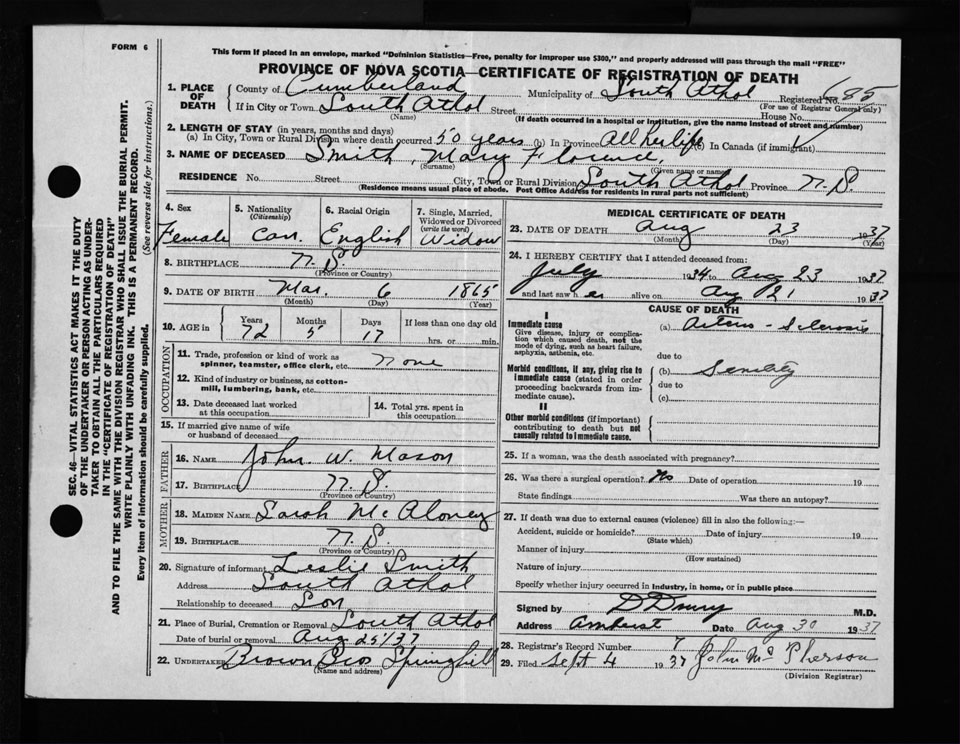 FORM 6
This form if placed in an envelope, marked "Dominion Statistics—Free, penalty for improper use $300," and properly addressed will pass through the mail "FREE"
PROVINCE OF NOVA SCOTIA—CERTIFICATE OF REGISTRATION OF DEATH
1. PLACE OF DEATH County of Cumberland Municipality of South Athol Registered No.
(For use of Registrar General only)
If in City or Town South Athol Street House No.
(Name) (If death occurred in a hospital or institution, give the name instead of street and number)
2. LENGTH OF STAY (in years, months and days)
(a) In City, Town or Rural Division where death occurred 50 years (b) In Province All her life (c) In Canada (if immigrant)
3. NAME OF DECEASED Smith, Mary Florence,
(Surname) (Given name or names)
RESIDENCE No. Street City, Town or Rural Division South Athol Province N.S.
(Residence means usual place of abode. Post Office Address for residents in rural parts not sufficient)
4. Sex Female
5. Nationality (Citizenship) Can.
6. Racial Origin English
7. Single, Married, Widowed or Divorced (write the word) Widow
8. BIRTHPLACE N.S.
(Province or Country)
9. DATE OF BIRTH Mar. 6 1865
(Month) (Day) (Year)
10. AGE in Years Months Days If less than one day old
72 5 17 hrs. or min.
OCCUPATION
11. Trade, profession or kind of work as spinner, teamster, office clerk, etc. None
12. Kind of industry or business, as cotton-mill, lumbering, bank, etc.
13. Date deceased last worked at this occupation
14. Total yrs. spent in this occupation.
15. If married give name of wife or husband of deceased
FATHER
16. NAME John W. Mason
17. BIRTHPLACE N.S.
(Province or Country)
MOTHER
18. MAIDEN NAME Sarah McAloney
19. BIRTHPLACE N.S.
(Province or Country)
20. Signature of informant Leslie Smith
Address South Athol
Relationship to deceased Son
21. Place of Burial, Cremation or Removal South Athol
Date of burial or removal Aug 25/37
22. UNDERTAKER Brown Bros Springhill
(Name and address)
MEDICAL CERTIFICATE OF DEATH
23. DATE OF DEATH Aug 23 1937
(Month) (Day) (Year)
24. I HEREBY CERTIFY that I attended deceased from:
July 1934 to Aug 23 1937
and last saw her alive on Aug 21 1937
CAUSE OF DEATH
I
Immediate cause
Give disease, injury or complication which caused death, not the mode of dying, such as heart failure, asphyxia, asthenia, etc.
(a) Arterio-Sclerosis
due to
Morbid conditions, if any, giving rise to immediate cause (stated in order proceeding backwards from immediate cause).
(b) Senility
due to
(c)
II
Other morbid conditions (if important) contributing to death but not causally related to immediate cause.
25. If a woman, was the death associated with pregnancy?
26. Was there a surgical operation? No Date of operation 19
State findings Was there an autopsy?
27. If death was due to external causes (violence) fill in also the following:—
Accident, suicide or homicide? Date of injury 19
(State which)
Manner of injury
(How sustained)
Nature of injury
Specify whether injury occurred in industry, in home, or in public place
Signed by D Drury M.D.
Address Amherst Date Aug 30 1937
28. Registrar's Record Number 7
29. Filed Sept 4 1937 John McPherson
(Division Registrar)
SEC. 46—VITAL STATISTICS ACT MAKES IT THE DUTY
OF THE UNDERTAKER OR PERSON ACTING AS UNDER-
TAKER TO OBTAIN ALL THE PARTICULARS REQUIRED
IN THE "CERTIFICATE OF REGISTRATION OF DEATH"
AND TO FILE THE SAME WITH THE DIVISION REGISTRAR WHO SHALL ISSUE THE BURIAL PERMIT.
WRITE PLAINLY WITH UNFADING INK. THIS IS A PERMANENT RECORD.
Every item of information should be carefully supplied. (See reverse side for instructions.)